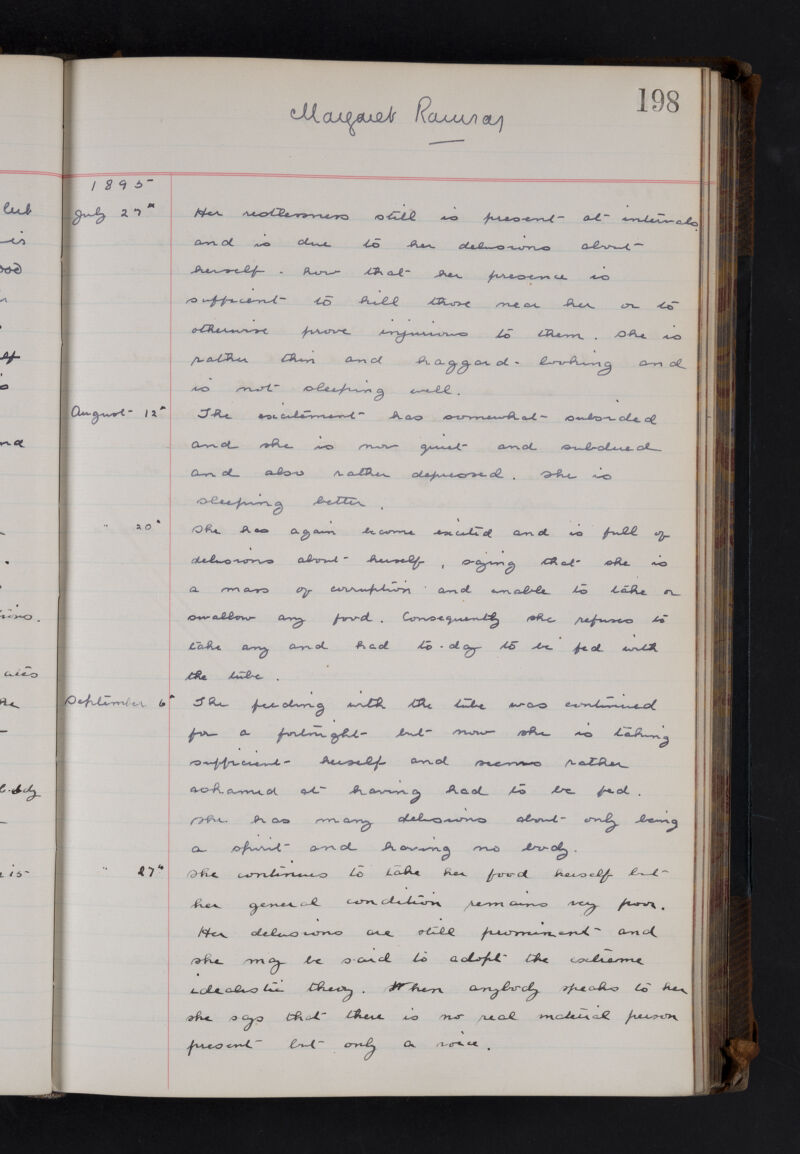 198
Margaret Ramsay
1895
July 27th Her restlessness still is present at intervals
and is due to her delusions about
herself - how that her presence is
sufficient to kill those near her or to
otherwise prove injurious to them. She is
rather thin and haggard-looking and
is not sleeping well.
August 12th The excitement has somewhat subsided
and she is now quiet and subdued
and also rather depressed. She is
sleeping better.
" 20th She has again become excited and is full of
delusions about herself, saying that she is
a mass of corruption and unable to take or
swallow any food. Consequently she refuses to
take any and had to-day to be fed with
the tube.
September 6th The feeding with the tube was continued
for a fortnight but now she is taking
sufficient herself and seems rather
ashamed at having had to be fed.
She has many delusions about only being
a spirit and having no body.
" 27th She continues to take her food herself but
her general condition remains very poor.
Her delusions are still prominent and
she may be said to adopt the extreme
idealistic theory. When anybody speaks to her
she says that there is no real material person
present but only a voice.